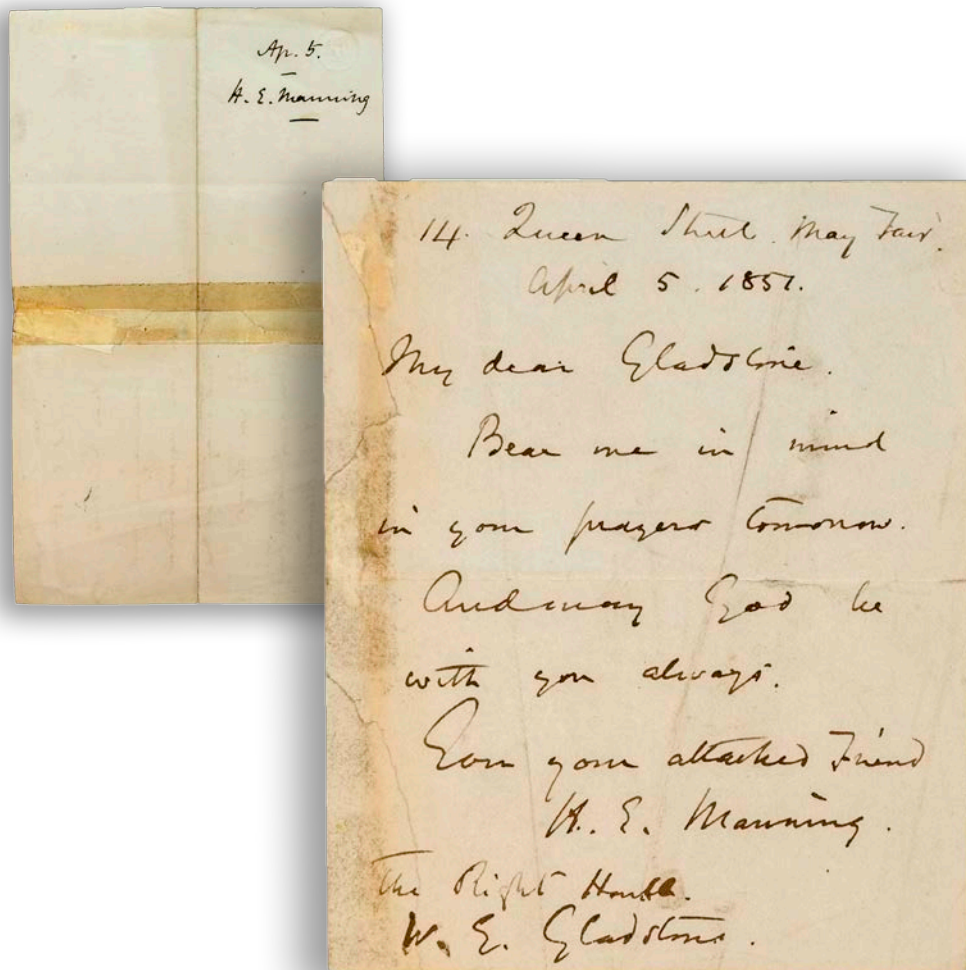 Ap. 5.
H. E. Manning
14. Queen Street. May Fair.
April 5. 1851.
My dear Gladstone.
Bear me in mind
in your prayers tomorrow.
And may God be
with you always.
Ever your attached Friend
H. E. Manning.
The Right Honble.
W. E. Gladstone.